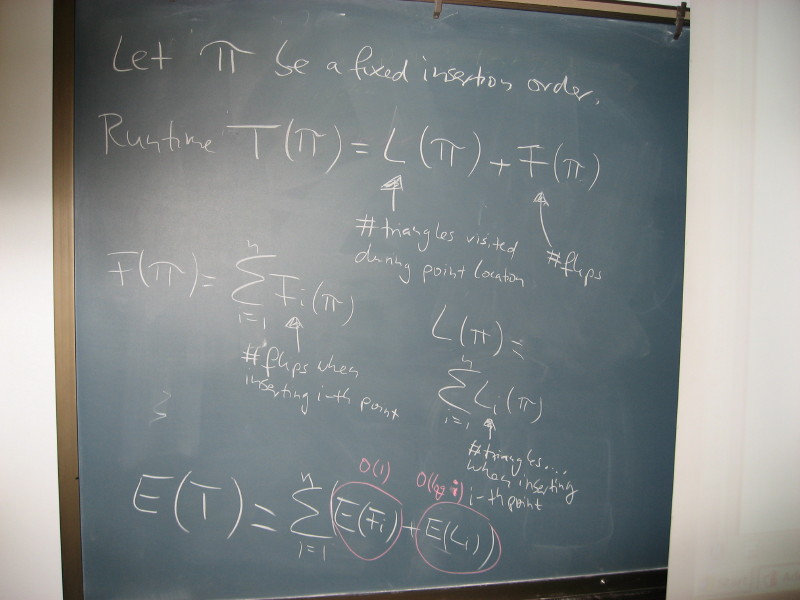 Let π be a fixed insertion order.
Runtime T(π) = L(π) + F(π)
#triangles visited
during point location
#flips
F(π) = Σ_{i=1}^{n} F_i(π)
#flips when
inserting i-th point
L(π) =
Σ_{i=1}^{n} L_i(π)
#triangles...
when inserting
i-th point
O(1)
O(log i)
E(T) = Σ_{i=1}^{n} (E(F_i) + E(L_i))